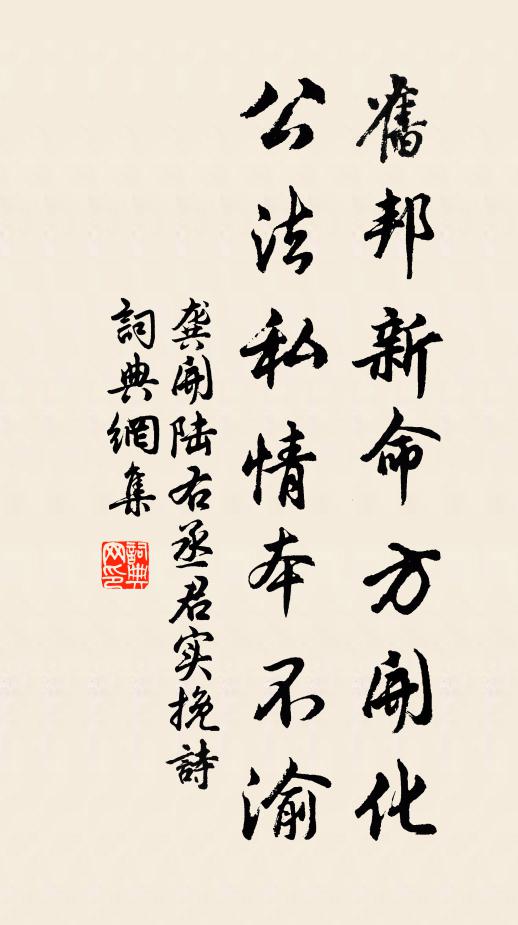 舊邦新命方開化
公法私情本不渝
龔開陸右丞君实挽詩
詞典網集
詞典网印